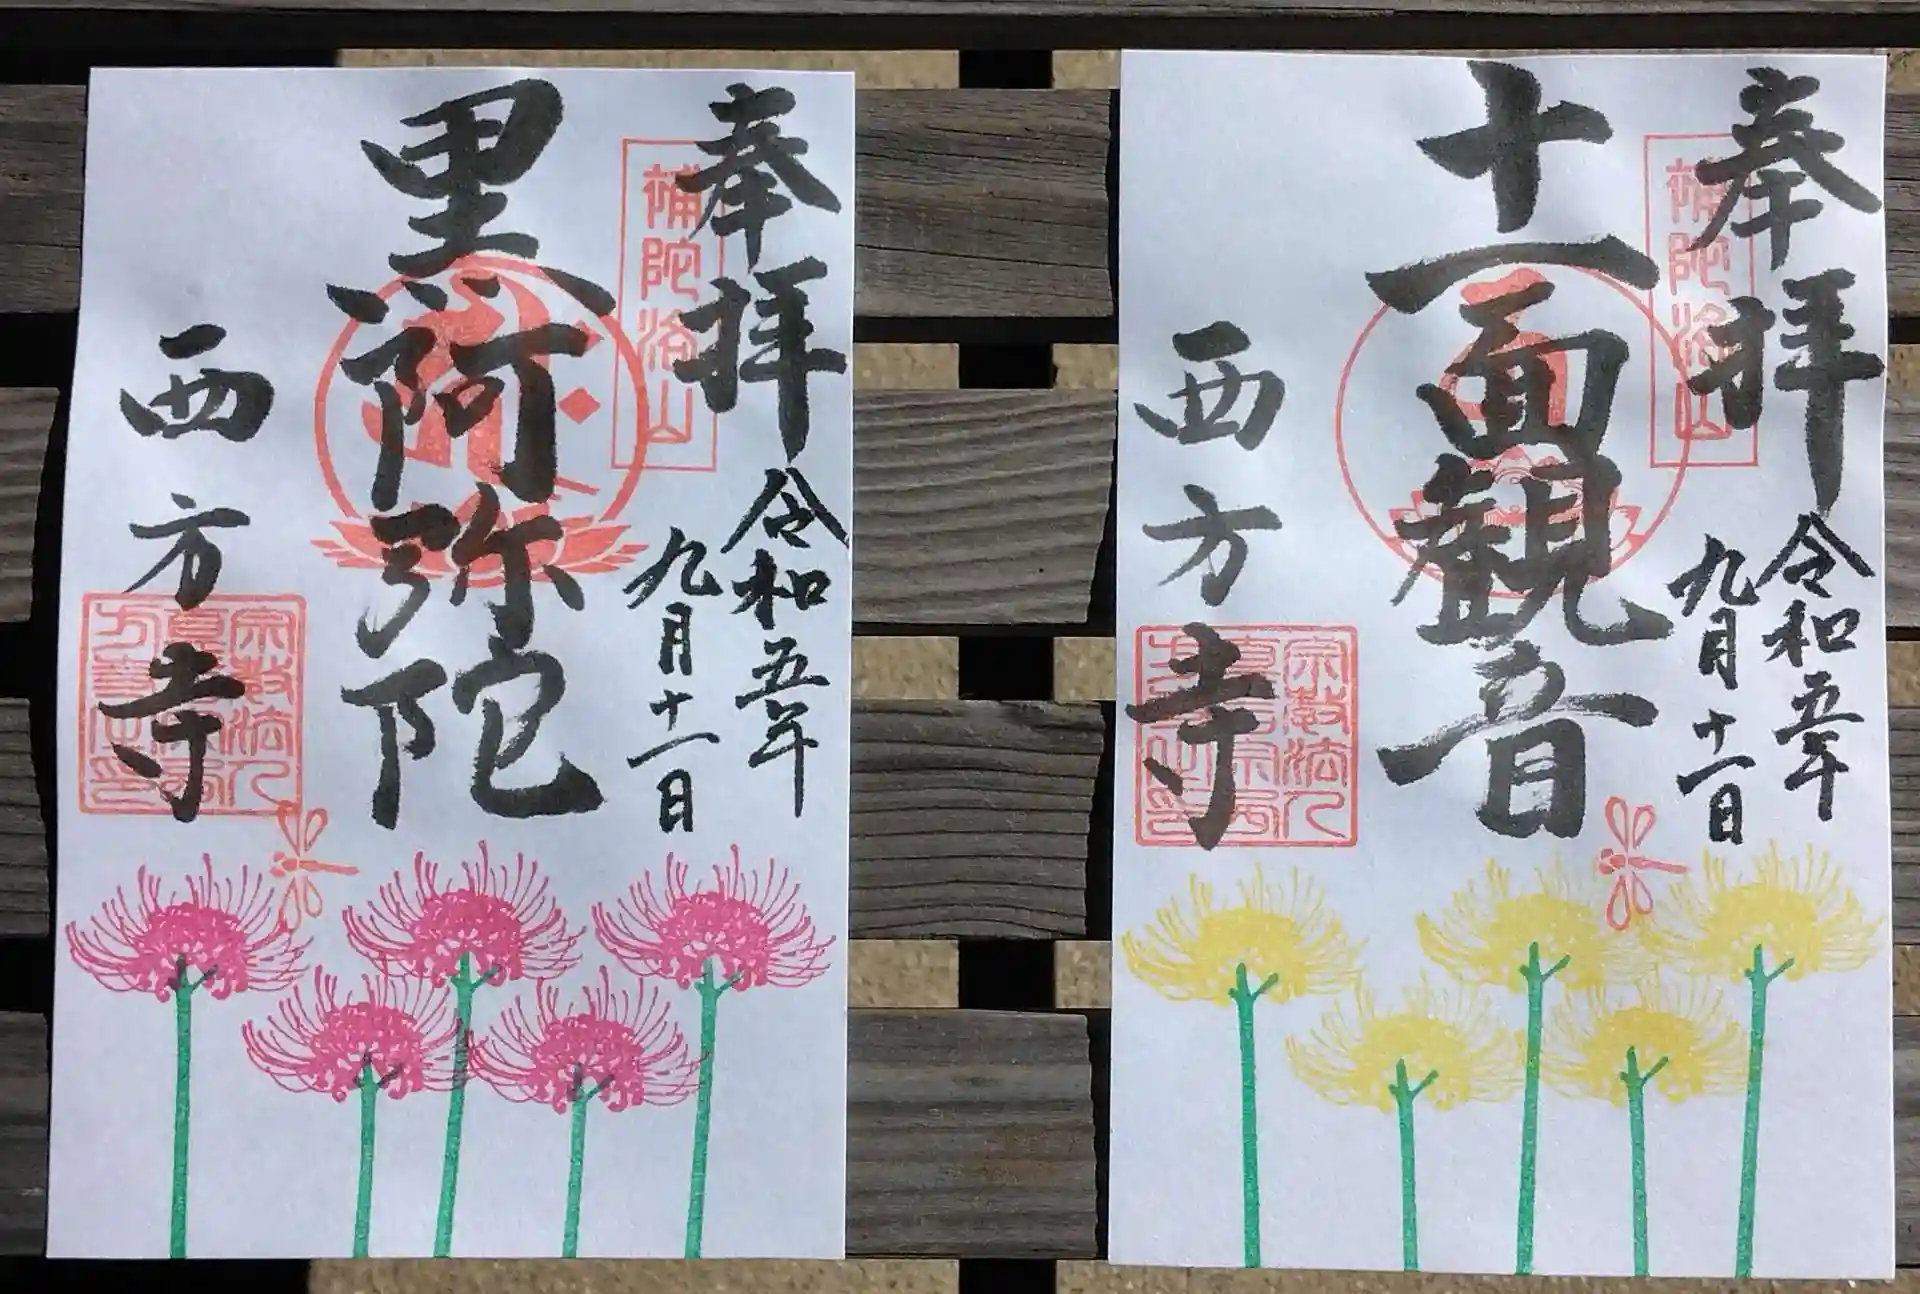 奉拝
補陀洛山
令和五年
九月十一日
黒阿弥陀
西方寺
奉拝
補陀洛山
令和五年
九月十一日
十一面観音
西方寺